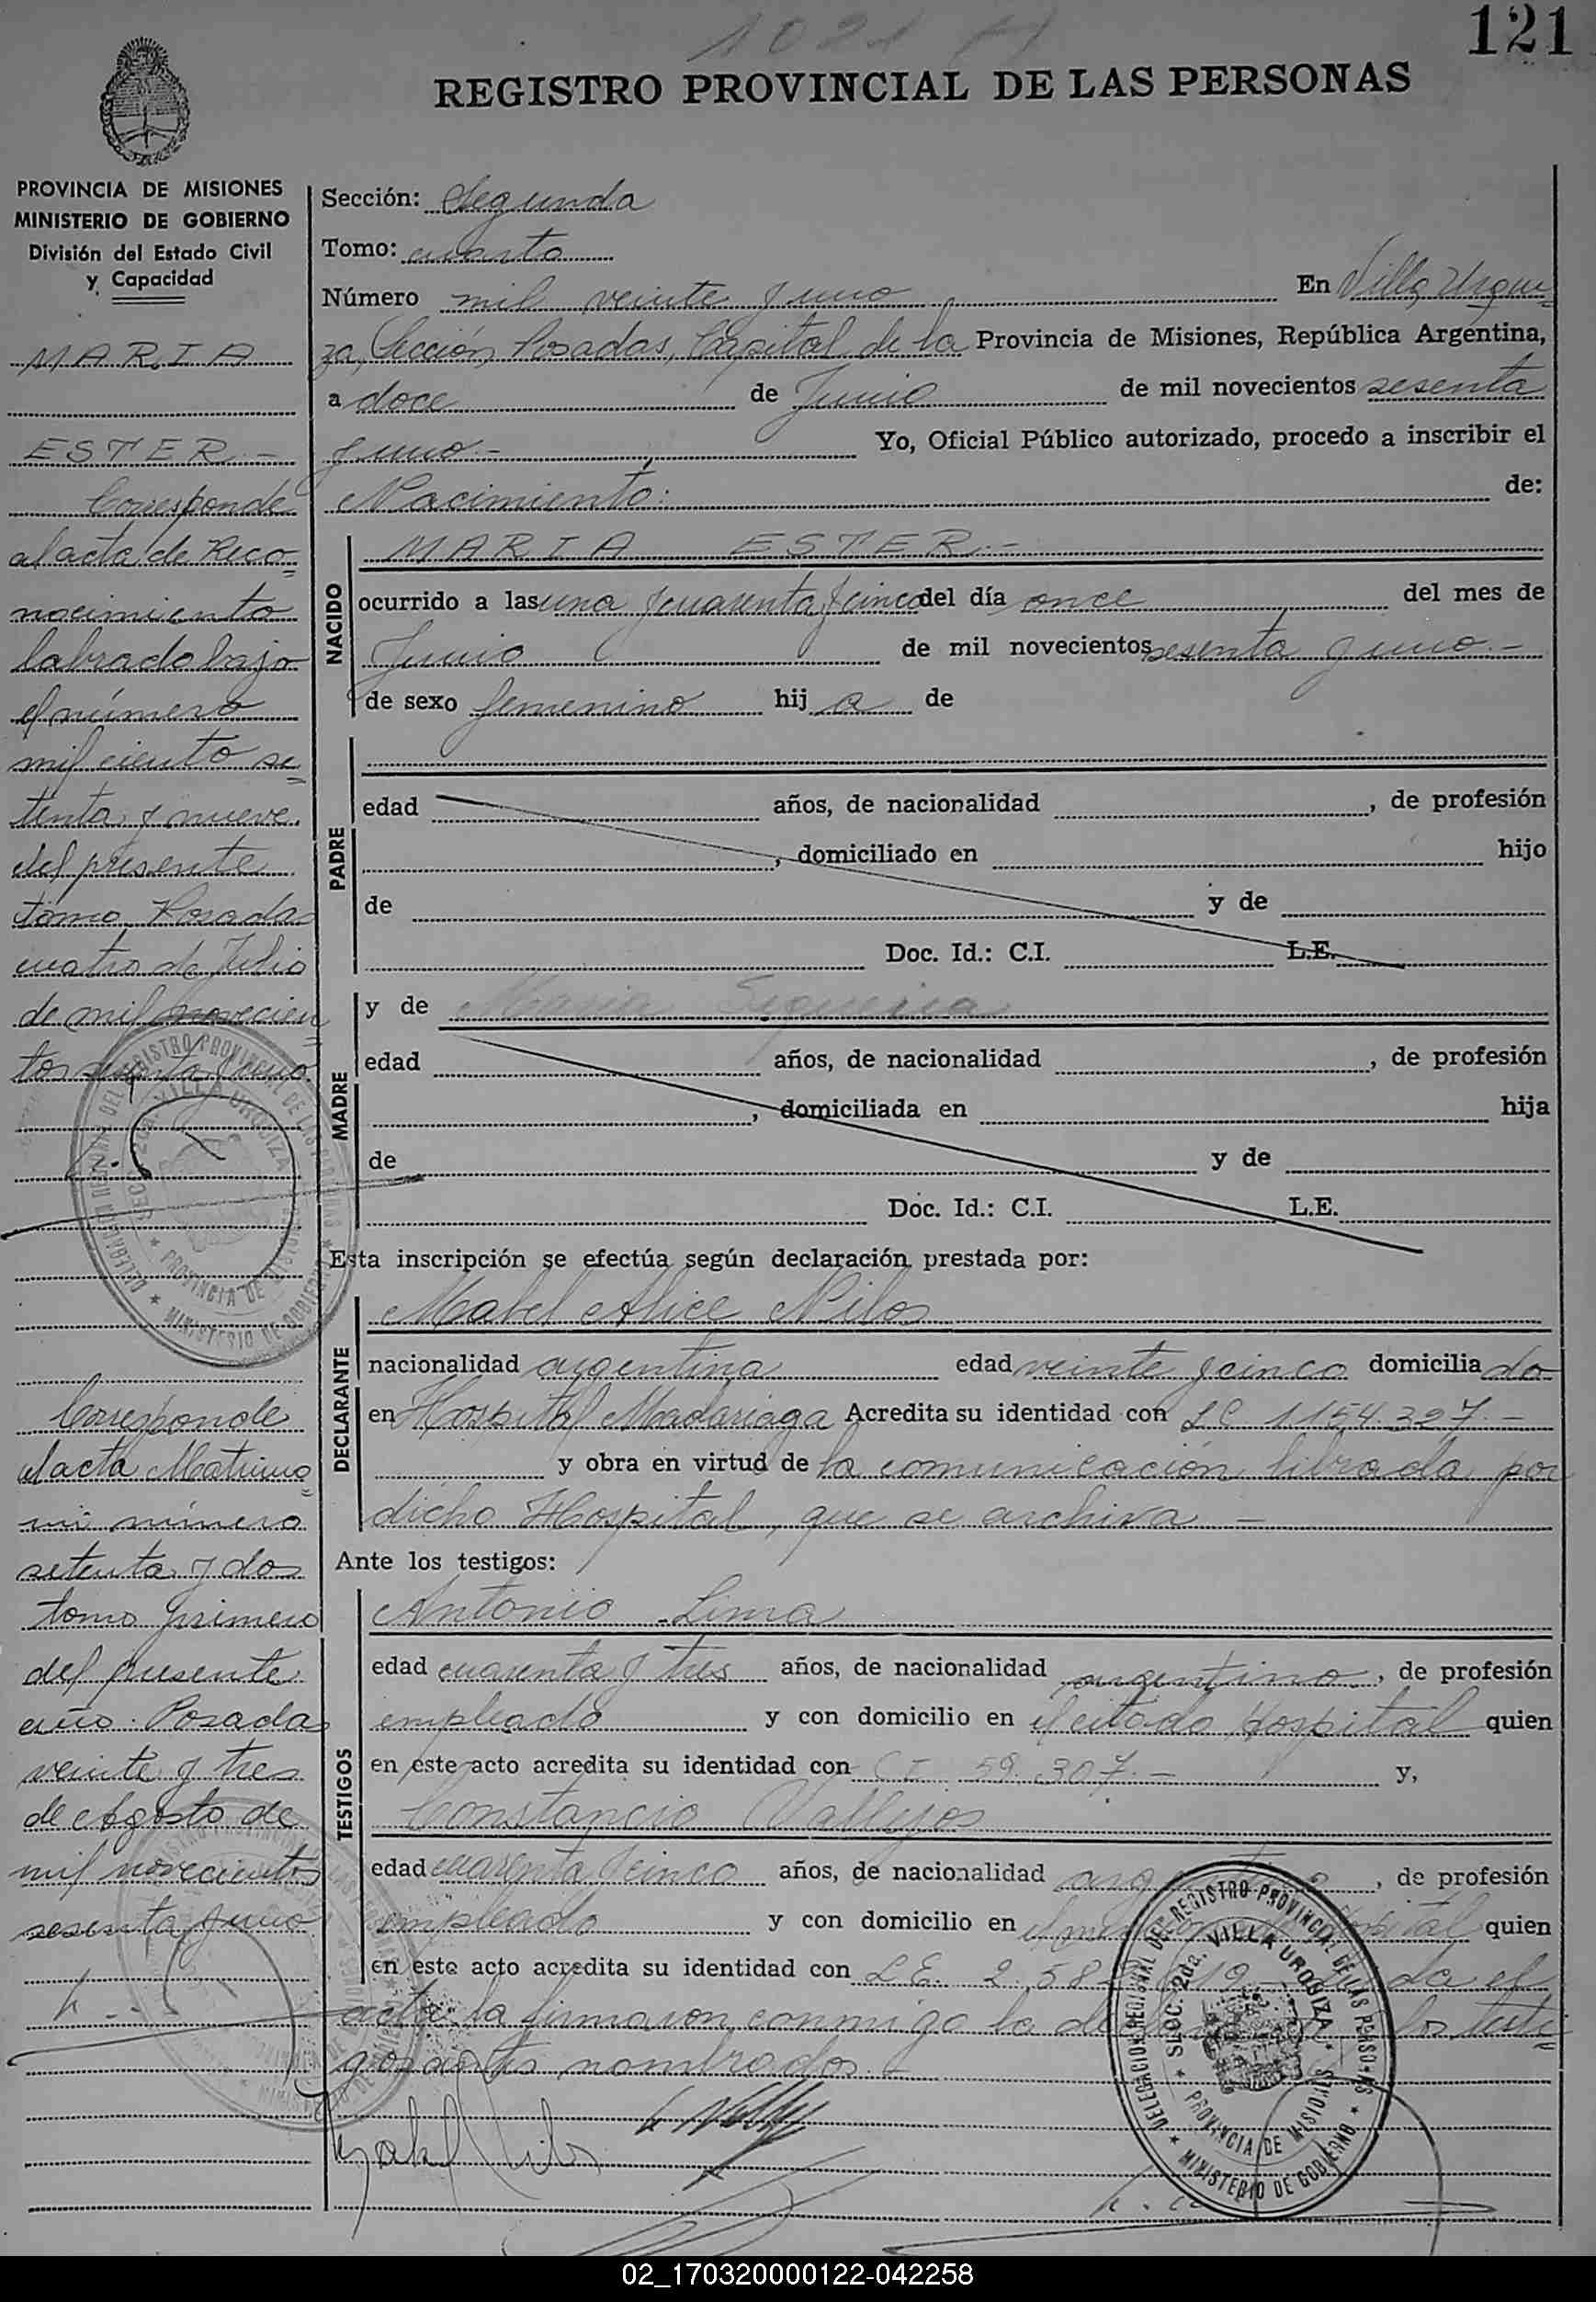 1021
121
REGISTRO PROVINCIAL DE LAS PERSONAS
PROVINCIA DE MISIONES
MINISTERIO DE GOBIERNO
División del Estado Civil
y Capacidad
MARIA
ESTER.-
Corresponde
al acta de Reco=
nocimiento
labrado bajo
el número
mil ciento se=
tenta y nueve
del presente
tomo. Posadas
cuatro de Julio
de mil novecien=
tos sesenta y uno.
Corresponde
al acta Matrimo=
nio número
setenta y dos
tomo primero
del presente
año. Posadas
veinte y tres
de Agosto de
mil novecientos
sesenta y uno
Sección: Segunda
Tomo: cuarto
Número mil veinte y uno En Villa Urqui=
za, Sección, Posadas, Capital de la Provincia de Misiones, República Argentina,
a doce de Junio de mil novecientos sesenta
y uno.- Yo, Oficial Público autorizado, procedo a inscribir el
Nacimiento: de:
NACIDO
MARIA ESTER.-
ocurrido a las una y cuarenta y cinco del día once del mes de
Junio de mil novecientos sesenta y uno.-
de sexo femenino hij a de
PADRE
edad años, de nacionalidad , de profesión
, domiciliado en hijo
de y de
Doc. Id.: C.I. L.E.
MADRE
y de Maria Siqueira
edad años, de nacionalidad , de profesión
, domiciliada en hija
de y de
Doc. Id.: C.I. L.E.
Esta inscripción se efectúa según declaración prestada por:
DECLARANTE
Mabel Alice Nilos
nacionalidad argentina edad veinte y cinco domicilia da
en Hospital Madariaga Acredita su identidad con LC 1154.327 -
y obra en virtud de la comunicación librada por
dicho Hospital, que se archiva -
Ante los testigos:
TESTIGOS
Antonio Lima
edad cuarenta y tres años, de nacionalidad argentino, de profesión
empleado y con domicilio en el citado Hospital quien
en este acto acredita su identidad con CI 59.307.- y,
Constancio Vallejos
edad cuarenta y cinco años, de nacionalidad , de profesión
empleado y con domicilio en el Hospital quien
en este acto acredita su identidad con LE. 2.58 da el
acta la firmaron conmigo la los testi=
gos antes nombrados.-
DELEGACION REGIONAL DEL REGISTRO PROVINCIAL DE LAS PERSONAS
SECC. 2da. VILLA URQUIZA
PROVINCIA DE MISIONES
MINISTERIO DE GOBIERNO
02_170320000122-042258